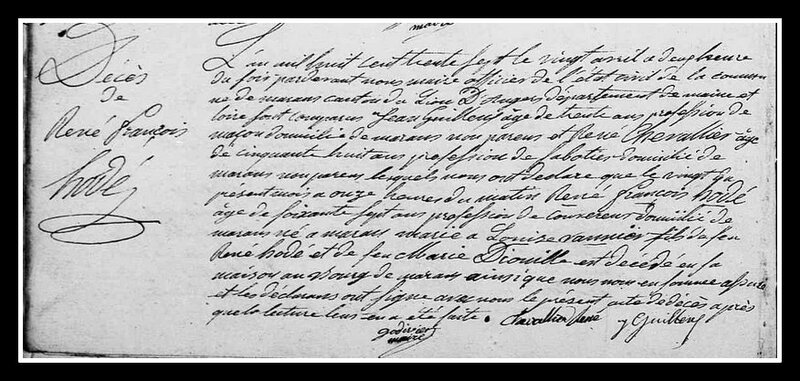 maire
Décès
de
René françois
hodé
L'an mil huit cent trente sept le vingt avril a deux heure
du soir pardevant nous maire officier de l'état civil de la commu
ne de marans canton du Lion D'angers département de maine et
loire sont comparus Jean Guilleux âge de trente ans profession de
maçon domicilié de marans non parens et René Chevallier âge
de cinquante huit ans profession de sabotier domicilié de
marans non parens lesquels nous ont déclaré que le vingt du
présent mois a onze heures du matin René françois hodé
âge de soixante sept ans profession de couvreur domicilié de
marans né a marans marié a Louise vannier fils de feu
René hodé et de feu Marie Diouille est décédé en sa
maison au bourg de marans ainsi que nous nous en somme assuré
et les déclarans ont signe avec nous le présent acte de décès après
que lecture leur en a été faite. Chavallier René J Guilleux
godivier
maire